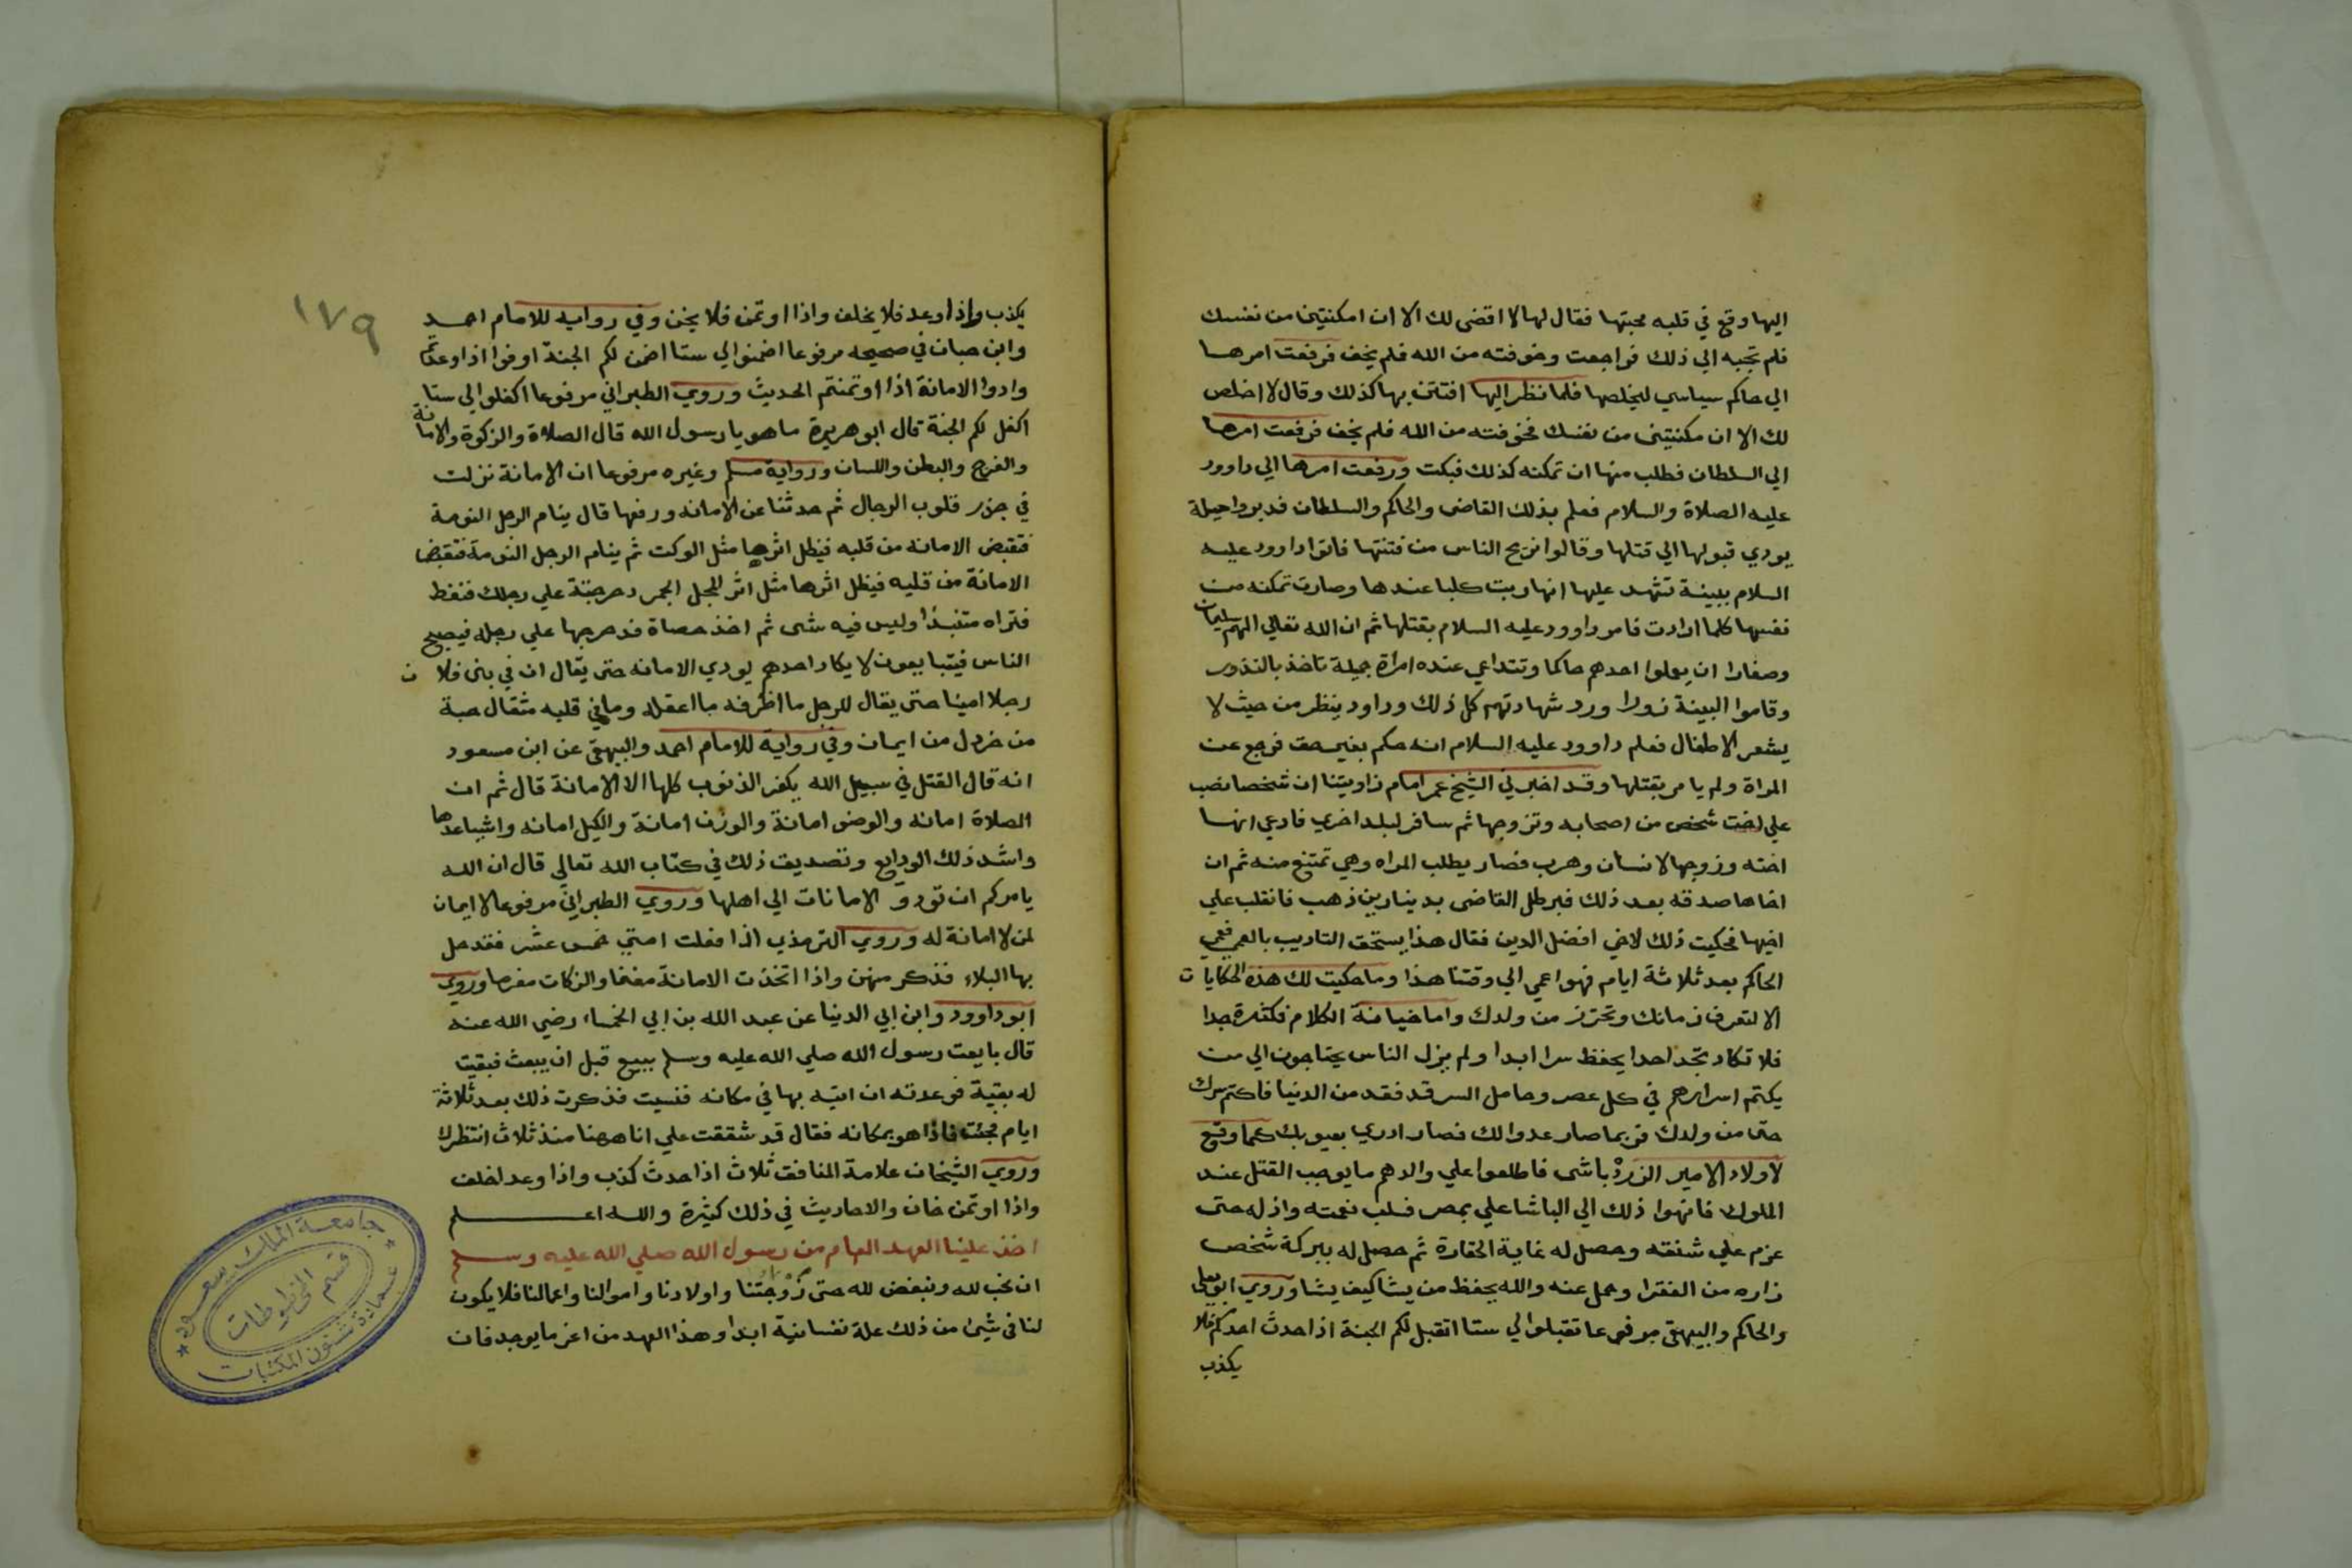 اليها وقع في قلبه محبتها فقال لها لا اقضى لك الا ان امكنتيني من نفسك
فلم تجبه الي ذلك فراجعت وخوفته من الله فلم يخف فرفعت امرها
الي حاكم سياسي ليخلصها فلما نظر اليها افتتن بها كذلك وقال لا اخلص
لك الا ان مكنتيني من نفسك فخوفته من الله فلم يخف فرفعت امرها
الي السلطان فطلب منها ان تمكنه كذلك فبكت ورفعت امرها الي داوود
عليه الصلاة والسلام فعلم بذلك القاضى والحاكم والسلطان فدبروا حيلة
يودي قبولها الي قتلها وقالوا نريح الناس من فتنتها فاتوا داوود عليه
السلام ببينة تشهد عليها انها ربت كلبا عندها وصارت تمكنه من
نفسها كلما ارادت فامر داوود عليه السلام بقتلها ثم ان الله تعالي الهم سليمان
وصغارا ان يعملوا احدهم حاكما وتتداعي عنده امراة جميلة تاخذ بالنذور
وقاموا البينة زورا ورد شهادتهم كل ذلك وداود ينظر من حيث لا
يشعر الاطفال فعلم داوود عليه السلام انه حكم بغير حق فرجع عن
المراة ولم يامر بقتلها وقد اخبرني الشيخ عمر امام زاويتنا ان شخصا نصب
علي اخت شخص من اصحابه وتزوجها ثم سافر لبلد اخري فادعي انها
اخته وزوجها لانسان وهرب فصار يطلب المراه وهي تمتنع منه ثم ان
اخاها صدقه بعد ذلك فبرطل القاضى بدينارين ذهب فانقلب علي
اخيها فحكيت ذلك لاخي افضل الدين فقال هذا يستحق التاديب بالعمي فعمي
الحاكم بعد ثلاثة ايام فهو اعمي الي وقتنا هذا وما حكيت لك هذه الحكايات
الا لتعرف زمانك وتحترز من ولدك واما خيانة الكلام فكثيرة جدا
فلا تكاد تجد احدا يحفظ سرا ابدا ولم يزل الناس يحتاجون الي من
يكتم اسرارهم في كل عصر وحامل السر قد فقد من الدنيا فاكتم سرك
حتى من ولدك فربما صار عدوا لك فصار ادري بعيوبك كما وقع
لاولاد الامير الزرد باشى فاطلعوا علي والدهم ما يوجب القتل عند
الملوك فانهوا ذلك الي الباشا علي بمصر فسلب نعمته واذله حتى
عزم علي شنقه وحصل له غاية الحقارة ثم حصل له ببركة شخص
زاره من الفقرا وحمل عنه والله يحفظ من يشا كيف يشا وروي ابو يعلي
والحاكم والبيهقى مرفوعا تقبلوا الي ستا اتقبل لكم الجنة اذا حدث احدكم فلا
يكذب
١٧٩
يكذب واذا وعد فلا يخلف واذا اوتمن فلا يخن وفي رواية للامام احمد
وابن حبان في صحيحه مرفوعا اضمنوا لي ستا اضمن لكم الجنة اوفوا اذا وعدتم
وادوا الامانة اذا اوتمنتم الحديث وروي الطبراني مرفوعا اكفلوا لي ستا
اكفل لكم الجنة قال ابو هريرة ما هو يا رسول الله قال الصلاة والزكوة والامانة
والفرج والبطن واللسان ورواية مسلم وغيره مرفوعا ان الامانة نزلت
في جذر قلوب الرجال ثم حدثنا عن الامانه ورفعها قال ينام الرجل النومة
فتقبض الامانه من قلبه فيظل اثرها مثل الوكت ثم ينام الرجل النومة فتقبض
الامانة من قلبه فيظل اثرها مثل اثر المجل الجمر دحرجته علي رجلك فنفط
فتراه منتبذا وليس فيه شى ثم اخذ حصاة فدحرجها علي رجله فيصبح
الناس فيتبايعون لا يكاد احدهم يودي الامانه حتى يقال ان في بنى فلان
رجلا امينا حتى يقال للرجل ما اظرفه ما اعقله وما في قلبه مثقال حبة
من خردل من ايمان وفي رواية للامام احمد والبيهقى عن ابن مسعود
انه قال القتل في سبيل الله يكفر الذنوب كلها الا الامانة قال ثم ان
الصلاة امانه والوضو امانة والوزن امانة والكيل امانه واشيا عدها
واشد ذلك الودايع وتصديق ذلك في كتاب الله تعالي قال ان الله
يامركم ان تودو الامانات الي اهلها وروي الطبراني مرفوعا لا ايمان
لمن لا امانة له وروي الترمذي اذا فعلت امتي خمس عشر فقد حل
بها البلاء فذكر منهن واذا اتخذت الامانة مغنما والزكات مغرما وروي
ابو داوود وابن ابي الدنيا عن عبد الله بن ابي الخمساء رضي الله عنه
قال بايعت رسول الله صلي الله عليه وسلم ببيع قبل ان يبعث فبقيت
له بقية فوعدته ان اتيه بها في مكانه فنسيت فذكرت ذلك بعد ثلاثة
ايام فجئت فاذا هو بمكانه فقال قد شققت علي انا ههنا منذ ثلاث انتظرك
وروي الشيخان علامة المنافق ثلاث اذا حدث كذب واذا وعد اخلف
واذا اوتمن خان والاحاديث في ذلك كثيرة والله اعلم
اخذ علينا العهد العام من رسول الله صلي الله عليه وسلم
ان نحب لله ونبغض لله حتى زوجتنا واولادنا واموالنا واعمالنا فلا يكون
لنا فى شيئ من ذلك علة نفسانية ابدا وهذا العهد من اعز ما يوجد فان
جامعة الملك سعود
قسم المخطوطات
عمادة شئون المكتبات